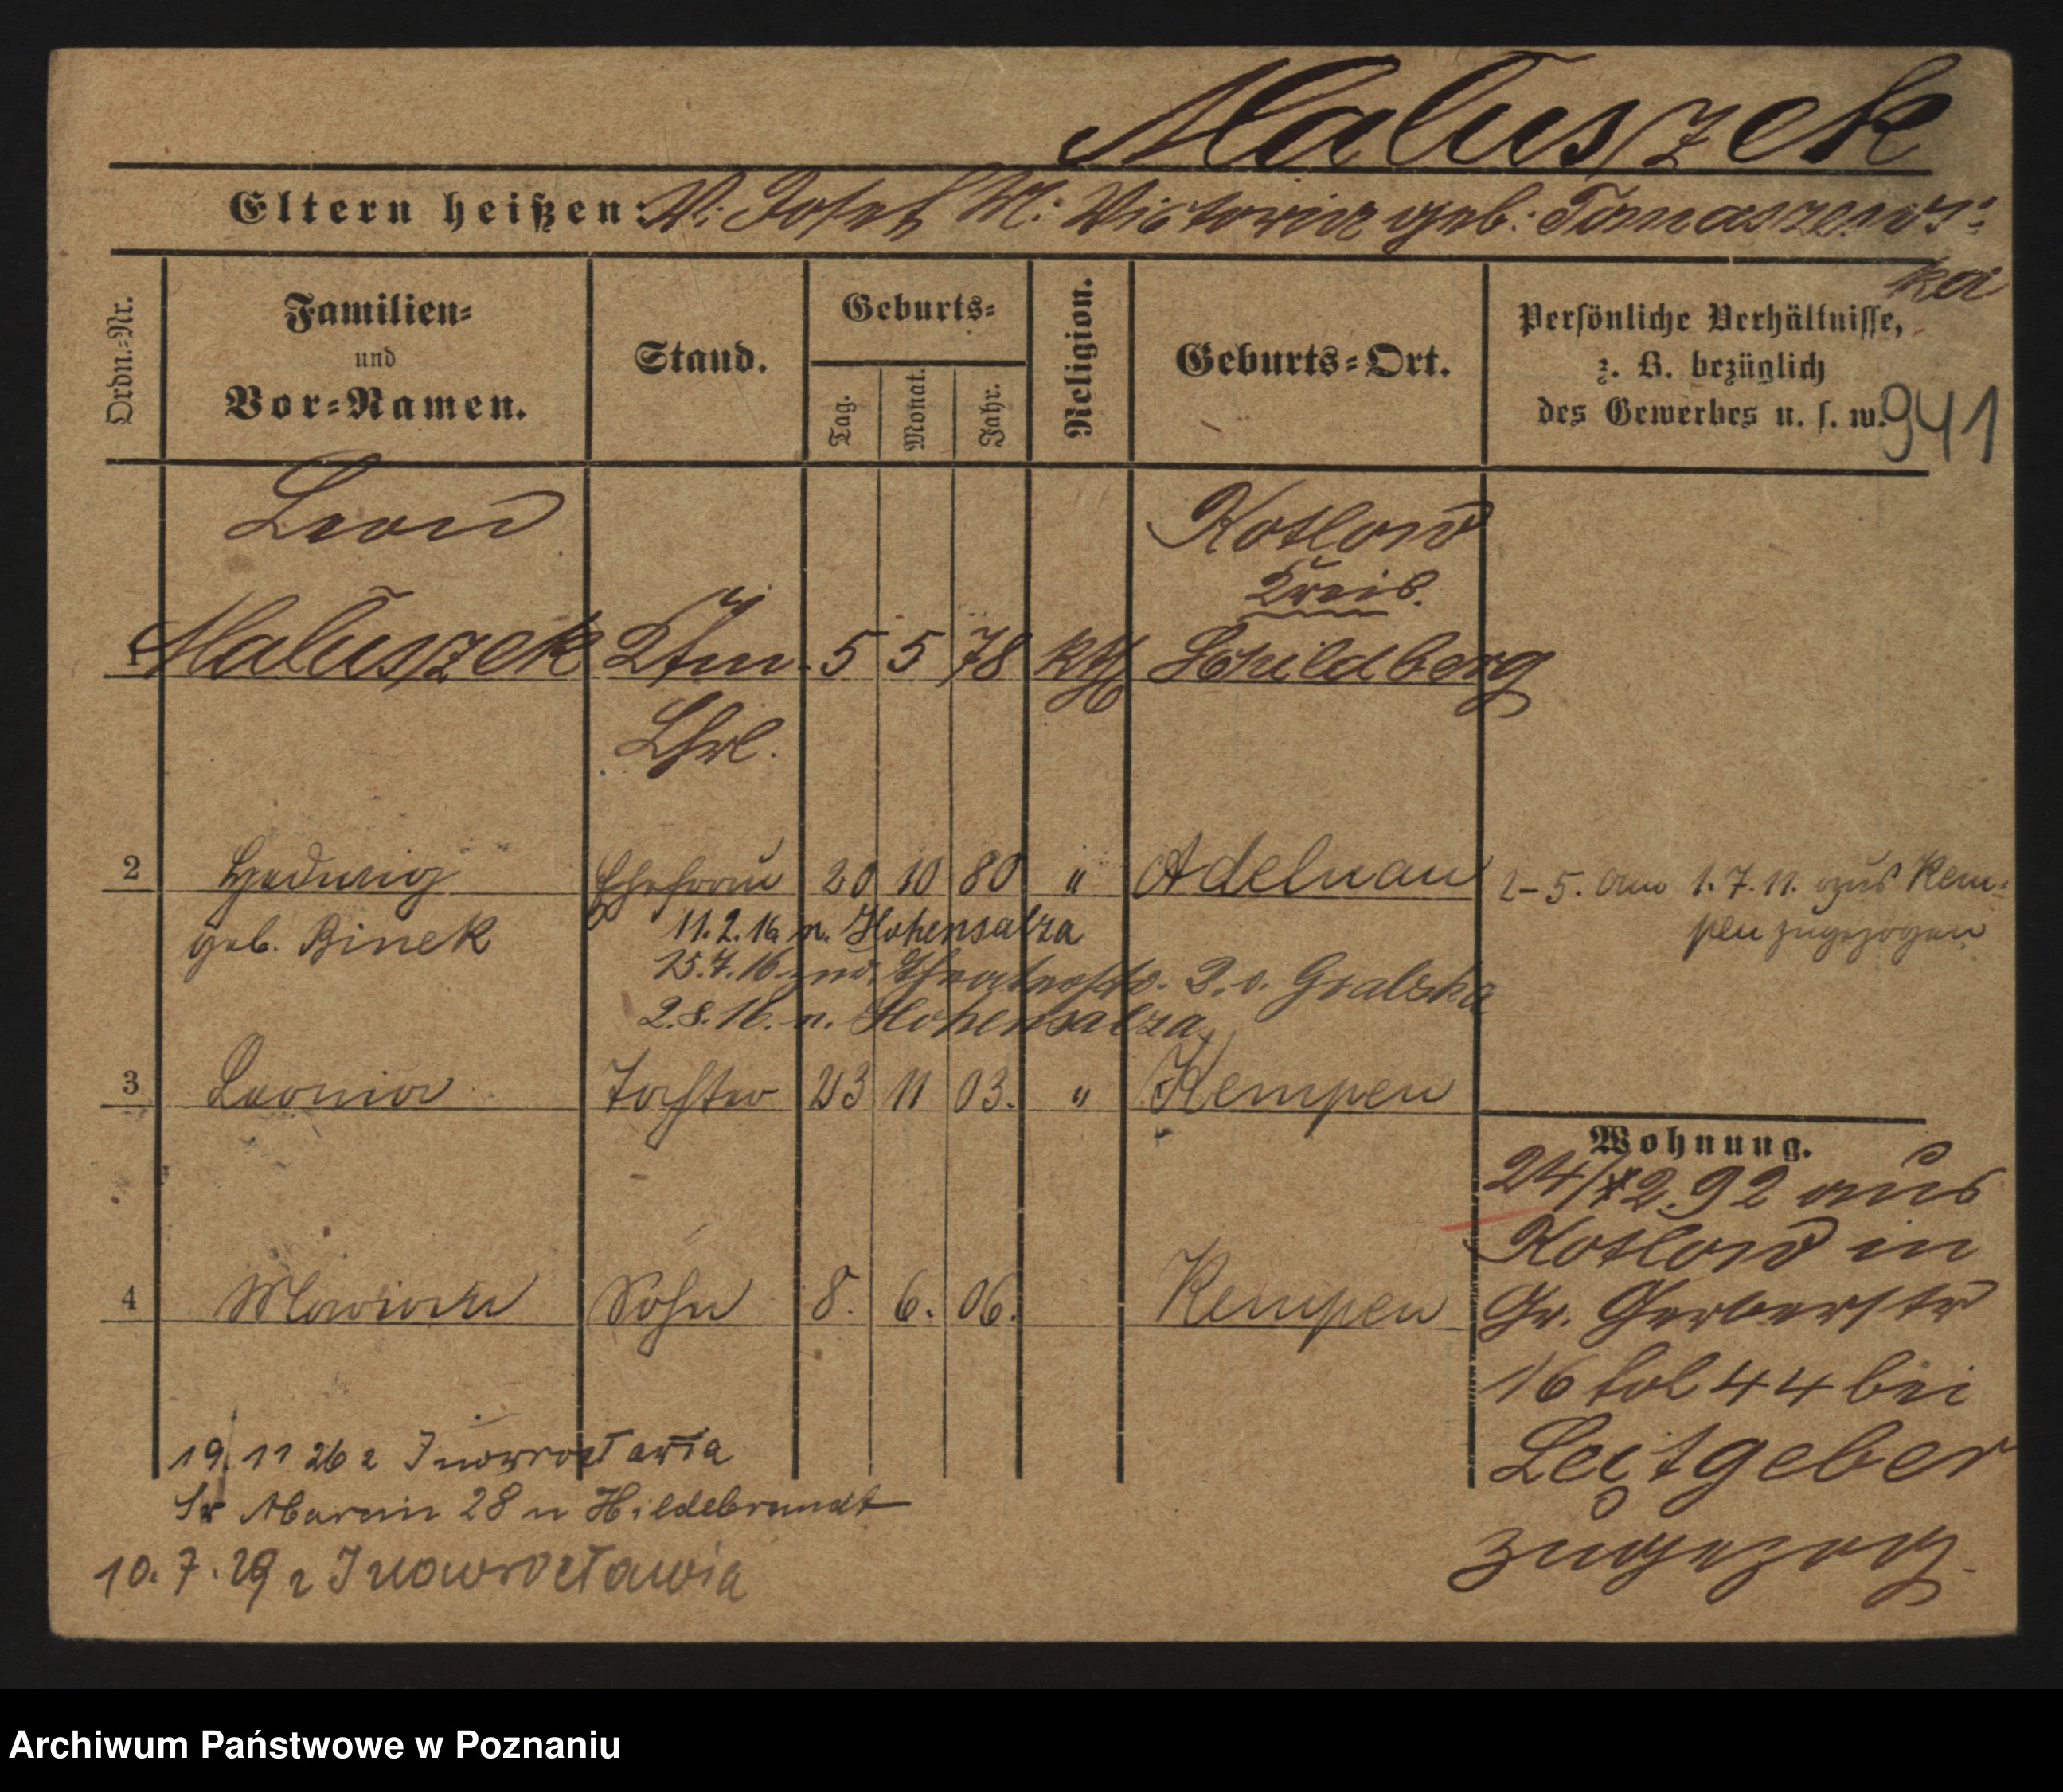 Maluszek
Eltern heißen: V: Josef M: Victoria geb: Tomaszews-
ka
Ordn.-Nr.
Familien-
und
Vor-Namen.
Stand.
Geburts-
Tag.
Monat.
Jahr.
Religion.
Geburts-Ort.
Persönliche Verhältnisse,
z. B. bezüglich
des Gewerbes u. s. w.
941
Leon Kotlow
Kreis
1 Maluszek Kfm. 5 5 78 kth Schildberg
Lhrl.
2 Hedwig Ehefrau 20 10 80 " Adelnau 2-5. am 1.7.11. aus Kem-
geb. Binek pen zugezogen
11.2.16 n. Hohensalza
25.7.16 zur. b. v. Gralska
2.8.16. n. Hohensalza
3 Leonia Tochter 23 11 03. " Kempen
Wohnung.
24/12.92 aus
Kotlow in
Gr. Gerberstr
4 Sohn 8. 6. 06. Kempen
16 fol 44 bei
Leitgeber
zugezog.
19.11 26 z Inowrocławia
Św Marcin 28 u Hildebrandt
10.7.29 z Inowrocławia
Archiwum Państwowe w Poznaniu